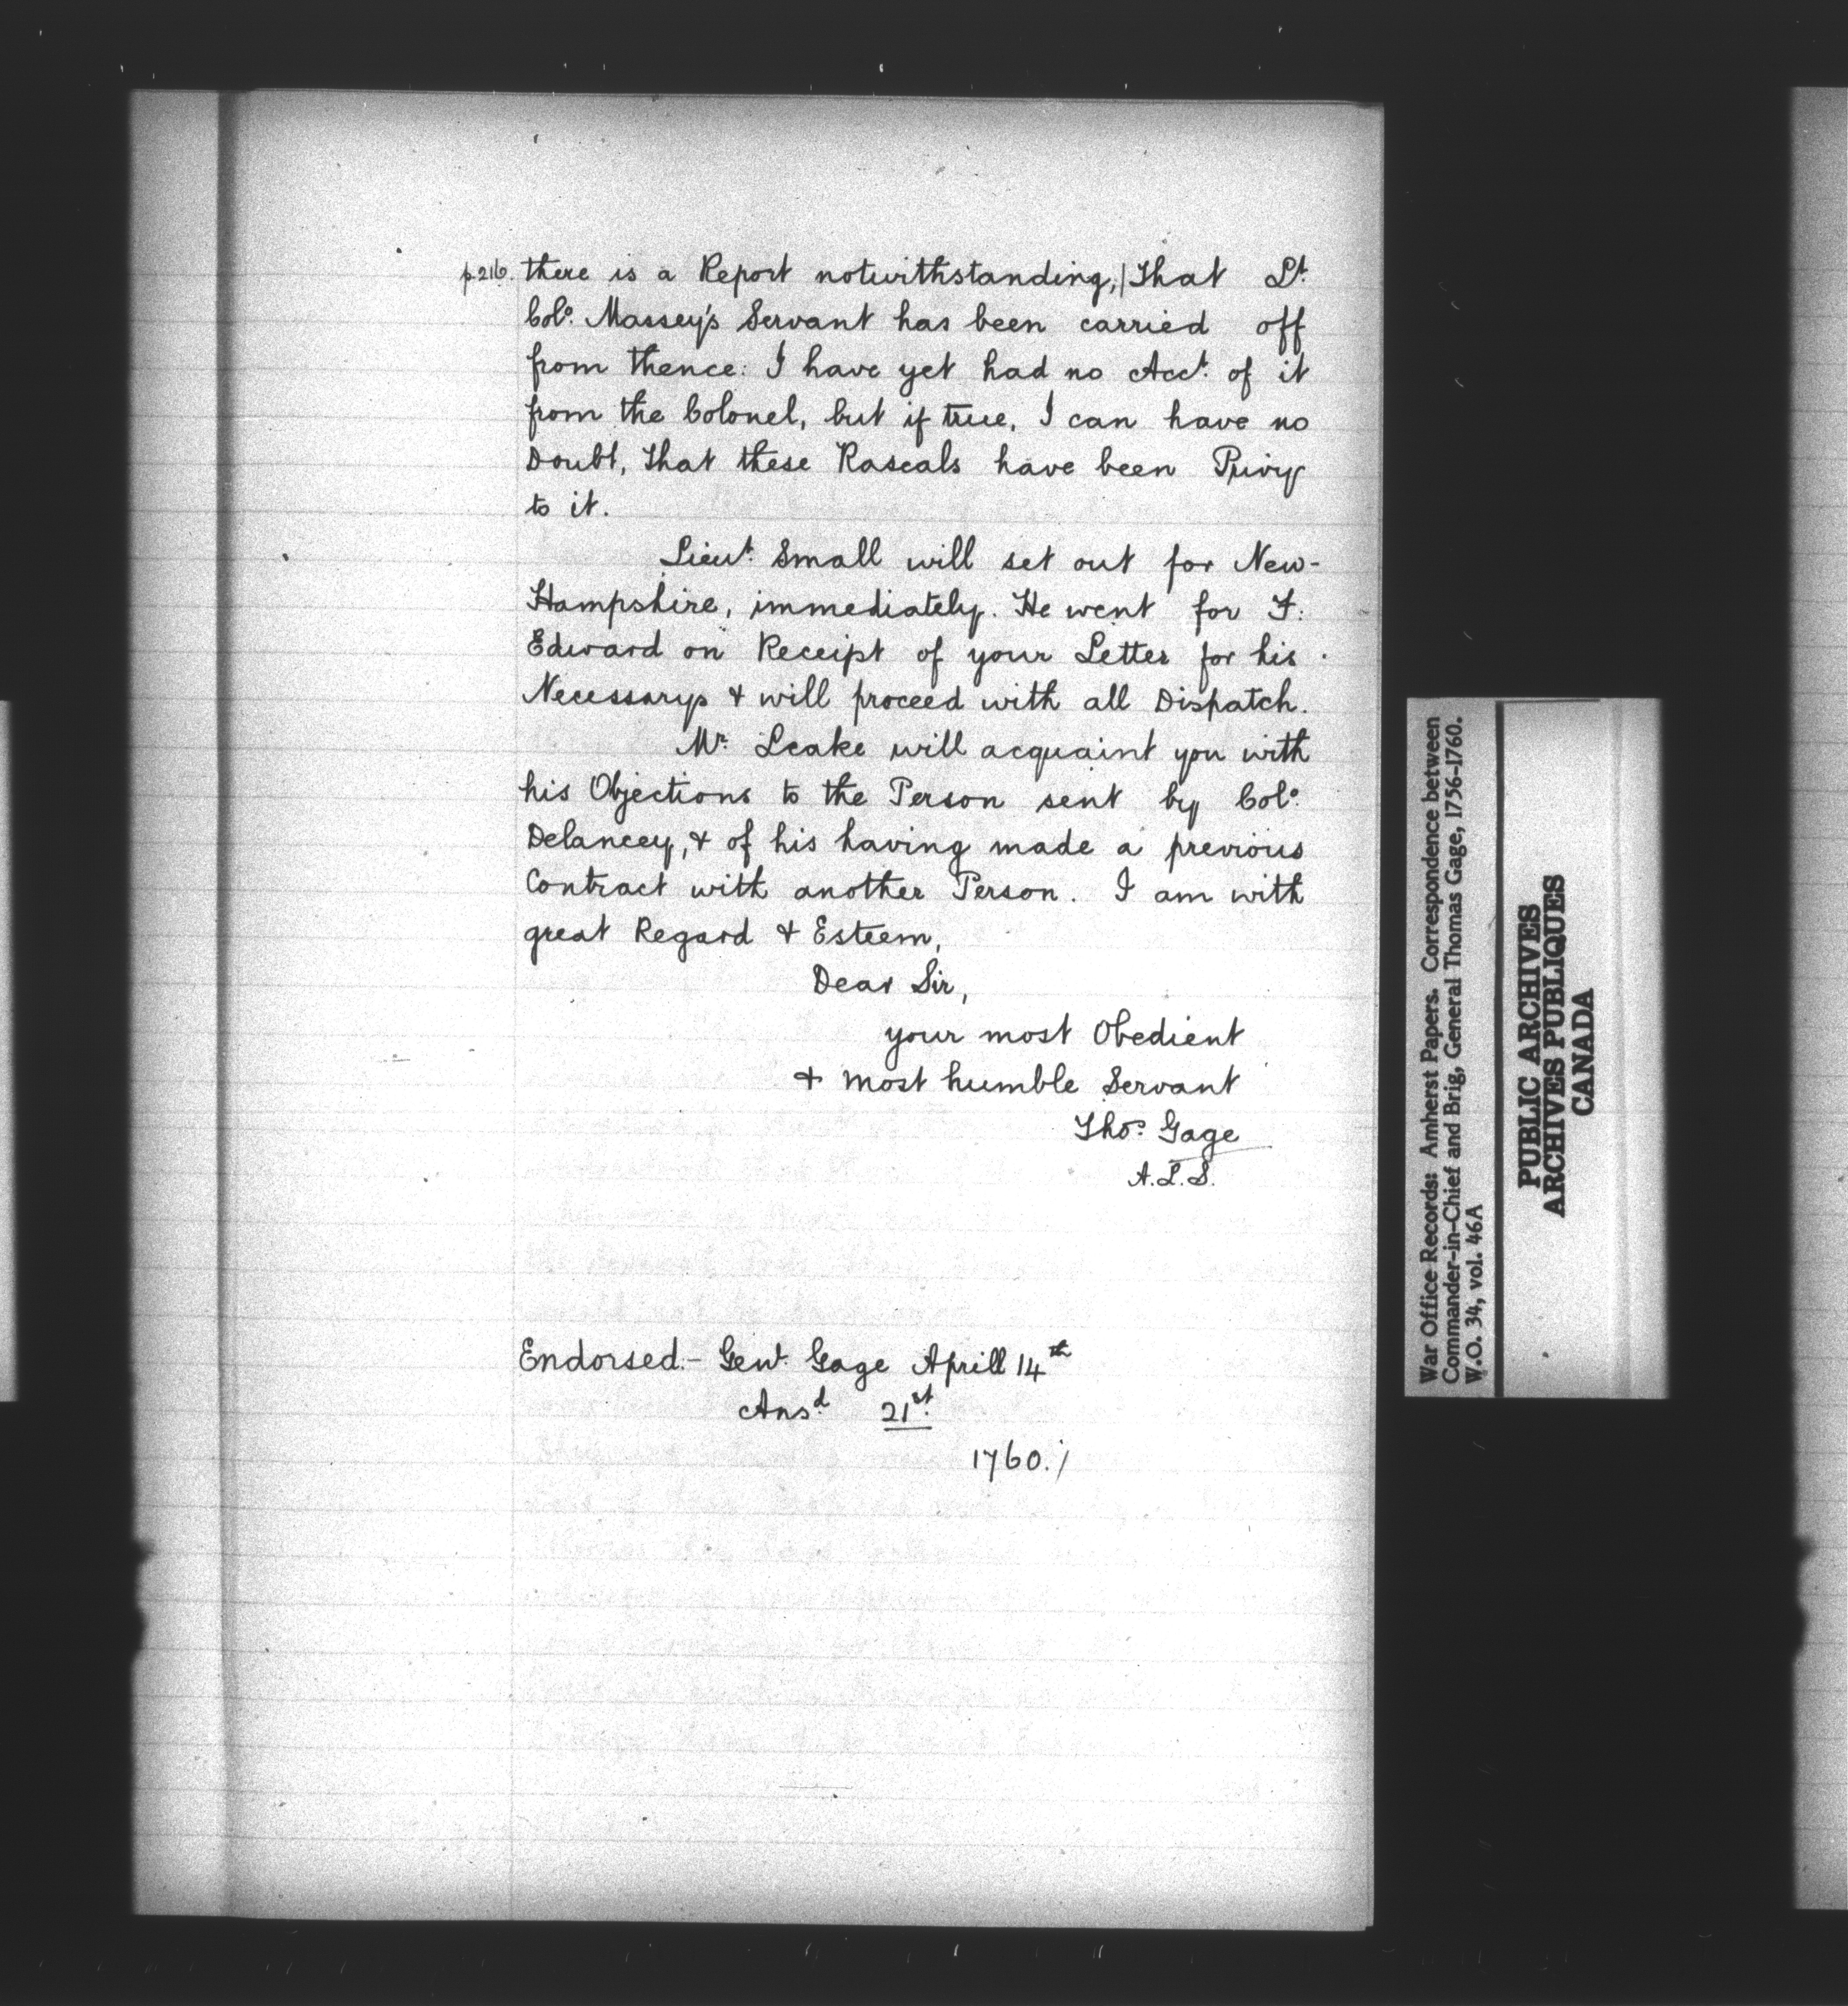 p.216. there is a Report notwithstanding,/that Lt.
Colo. Massey's Servant has been carried off
from thence: I have yet had no Acct. of it
from the Colonel, but if true, I can have no
Doubt, that these Rascals have been Privy
to it.
Lieut. Small will set out for New-
Hampshire, immediately. He went for F:
Edward on Receipt of your Letter for his
Necessarys & will proceed with all Dispatch.
Mr. Leake will acquaint you with
his Objections to the Person sent by Colo.
Delancey, & of his having made a previous
Contract with another Person. I am with
great Regard & Esteem,
Dear Sir,
your most Obedient
& most humble Servant
Thos. Gage
A.L.S.
Endorsed.- Genl. Gage Aprill 14th
Ansd. 21st.
1760./
War Office Records: Amherst Papers. Correspondence between
Commander-in-Chief and Brig, General Thomas Gage, 1756-1760.
W.O. 34, vol. 46A
PUBLIC ARCHIVES
ARCHIVES PUBLIQUES
CANADA